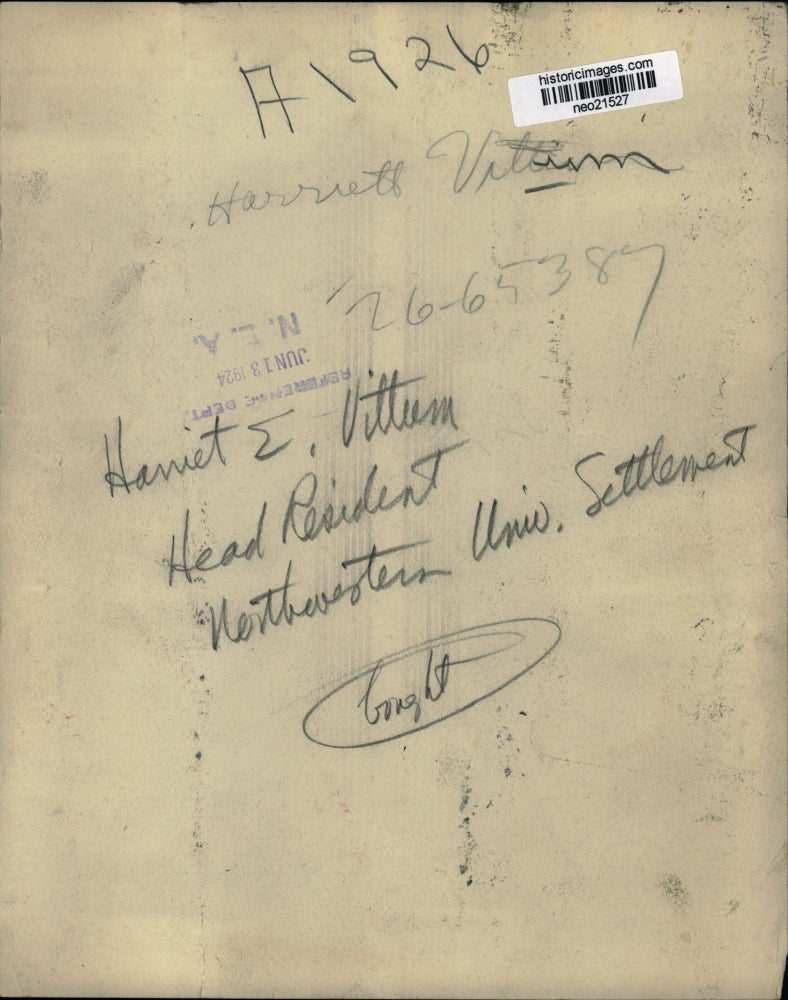 A 1926
historicimages.com
neo21527
Harriett Vittum
26-65387
N.E.A.
JUN 13 1924
REFERENCE DEPT.
Harriet E. Vittum
Head Resident
Northwestern Univ. Settlement
bought